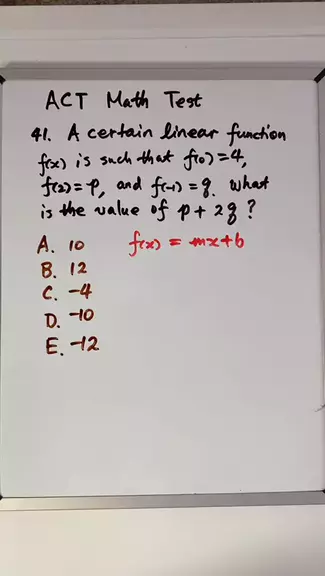 ACT Math Test
41. A certain linear function
f(x) is such that f(0)=4,
f(2)=p, and f(-1)=q. What
is the value of p+2q?
A. 10 f(x) = mx+b
B. 12
C. -4
D. -10
E. -12